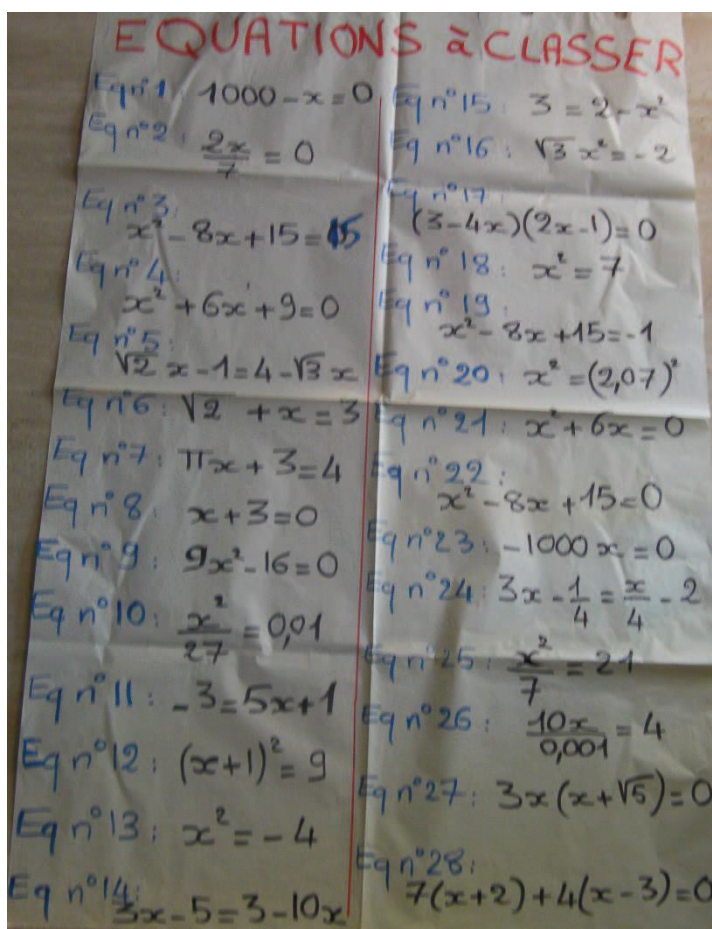 EQUATIONS à CLASSER
Eq n°1: 1000 - x = 0
Eq n°2: 2x/7 = 0
Eq n°3:
x² - 8x + 15 = 15
Eq n°4:
x² + 6x + 9 = 0
Eq n°5:
√2 x - 1 = 4 - √3 x
Eq n°6: √2 + x = 3
Eq n°7: πx + 3 = 4
Eq n°8: x + 3 = 0
Eq n°9: 9x² - 16 = 0
Eq n°10: x²/27 = 0,01
Eq n°11: -3 = 5x + 1
Eq n°12: (x + 1)² = 9
Eq n°13: x² = -4
Eq n°14:
3x - 5 = 3 - 10x
Eq n°15: 3 = 2 - x²
Eq n°16: √3 x² = -2
Eq n°17
(3 - 4x)(2x - 1) = 0
Eq n°18: x² = 7
Eq n°19:
x² - 8x + 15 = -1
Eq n°20: x² = (2,07)²
Eq n°21: x² + 6x = 0
Eq n°22:
x² - 8x + 15 = 0
Eq n°23: -1000x = 0
Eq n°24: 3x - 1/4 = x/4 - 2
Eq n°25: x²/7 = 21
Eq n°26: 10x/0,001 = 4
Eq n°27: 3x(x + √5) = 0
Eq n°28:
7(x + 2) + 4(x - 3) = 0